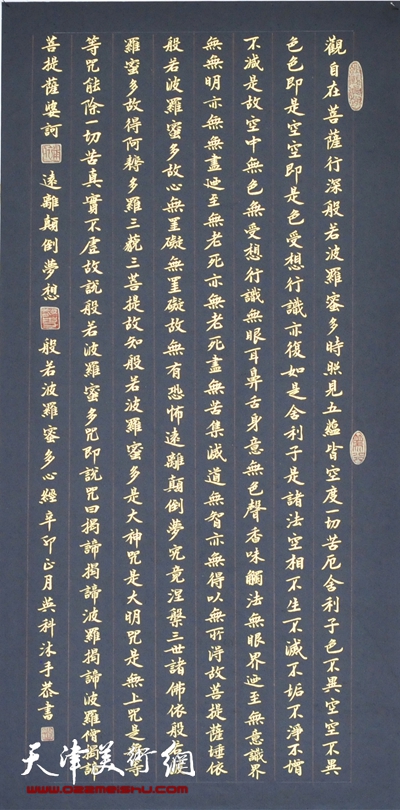 觀自在菩薩行深般若波羅蜜多時照見五蘊皆空度一切苦厄舍利子色不異空空不異
色色即是空空即是色受想行識亦復如是舍利子是諸法空相不生不滅不垢不淨不增
不減是故空中無色無受想行識無眼耳鼻舌身意無色聲香味觸法無眼界迺至無意識界
無無明亦無無盡迺至無老死亦無老死盡無苦集滅道無智亦無得以無所得故菩提薩埵依
般若波羅蜜多故心無罣礙無罣礙故無有恐怖遠離顛倒夢究竟涅槃三世諸佛依般若波
羅蜜多故得阿耨多羅三藐三菩提故知般若波羅蜜多是大神咒是大明咒是無上咒是無等
等咒能除一切苦真實不虛故說般若波羅蜜多咒即說咒曰揭諦揭諦波羅揭諦波羅僧揭諦
菩提薩婆訶 遠離顛倒夢想 般若波羅蜜多心經辛卯正月英科沐手恭書
天津美術網
www.022meishu.com